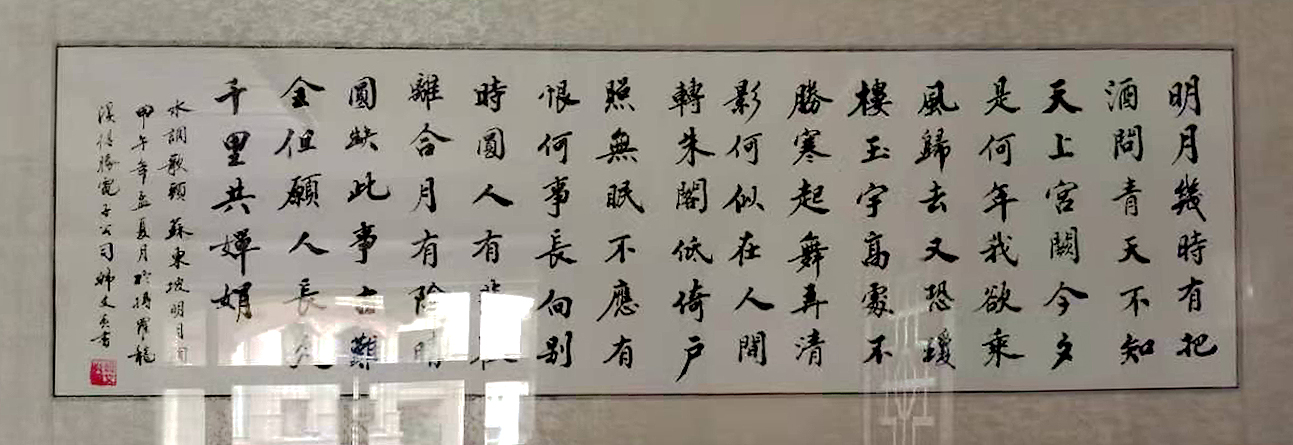 明月幾時有把
酒問青天不知
天上宮闕今夕
是何年我欲乘
風歸去又恐瓊
樓玉宇高處不
勝寒起舞弄清
影何似在人間
轉朱閣低倚戶
照無眠不應有
恨何事長向别
時圓人有悲歡
離合月有陰晴
圓缺此事古難
全但願人長久
千里共嬋娟
水調歌頭蘇東坡明月
甲午年孟夏月於博羅龍
溪恒勝電子公司